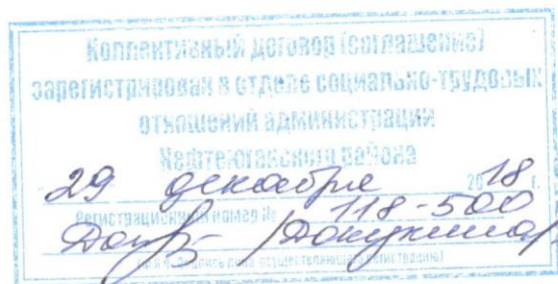 Коллективный договор (соглашение)
зарегистрирован в отделе социально-трудовых
отношений администрации
Нефтеюганского района
29 декабря 2018 г.
Регистрационный номер № 118-500
/Докукина/
подпись лица, осуществляющего регистрацию)